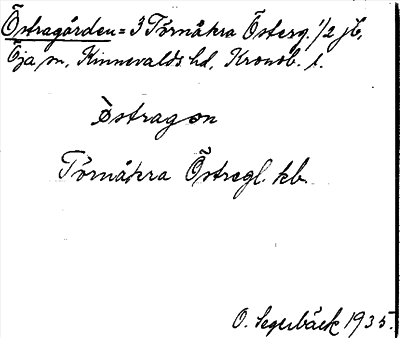 Östragården = 3 Törnåkra Österg. 1/2 jb,
Öja sn, Kinnevalds hd, Kronob. l.
östragɷn
Törnåkra Östregl. kb.
O. Segerbäck 1935.